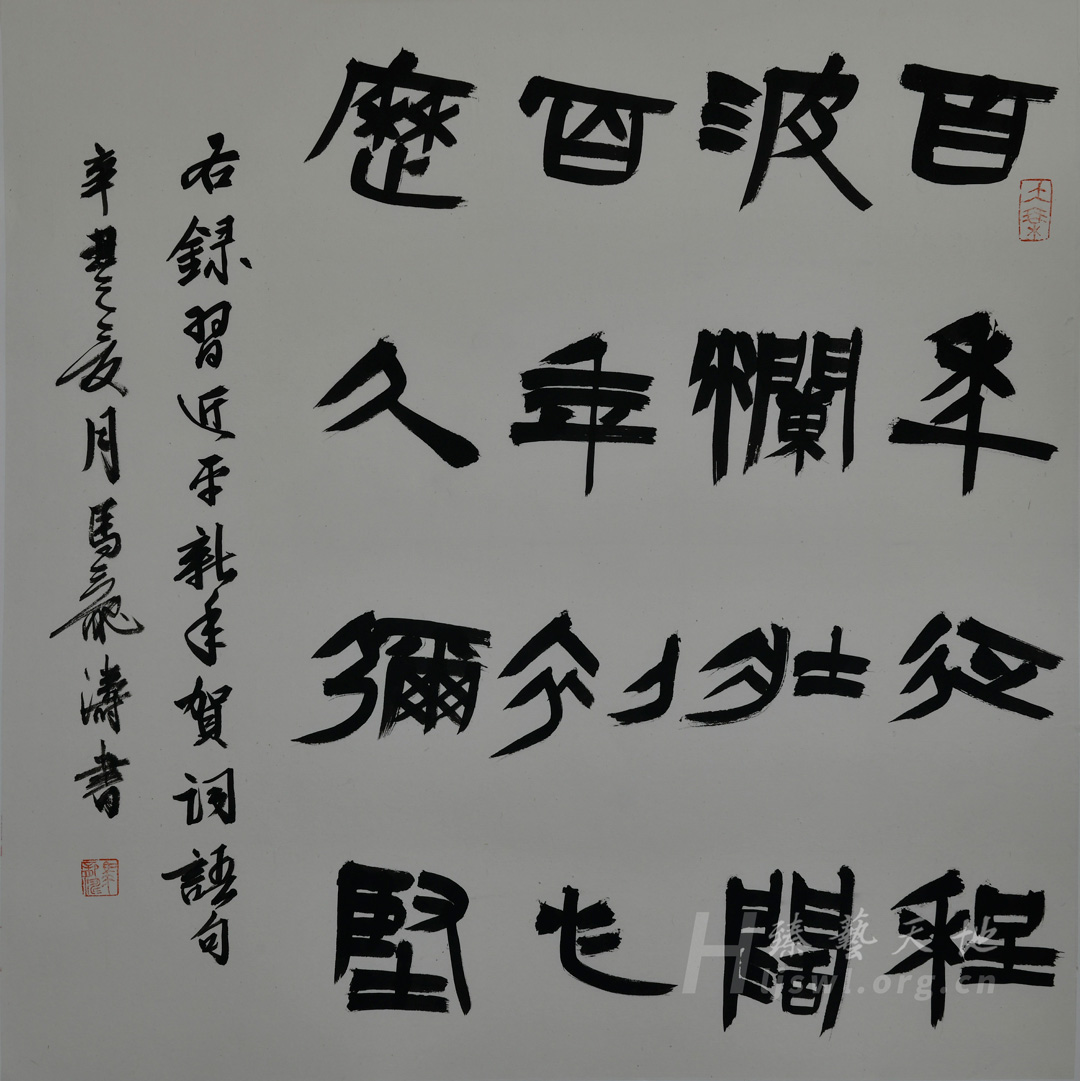 百年征程
波瀾壯闊
百年初心
歷久彌堅
右録習近平新年賀詞語句
辛丑之夏月馬龍濤書
臻藝天地
Hyswl.org.cn